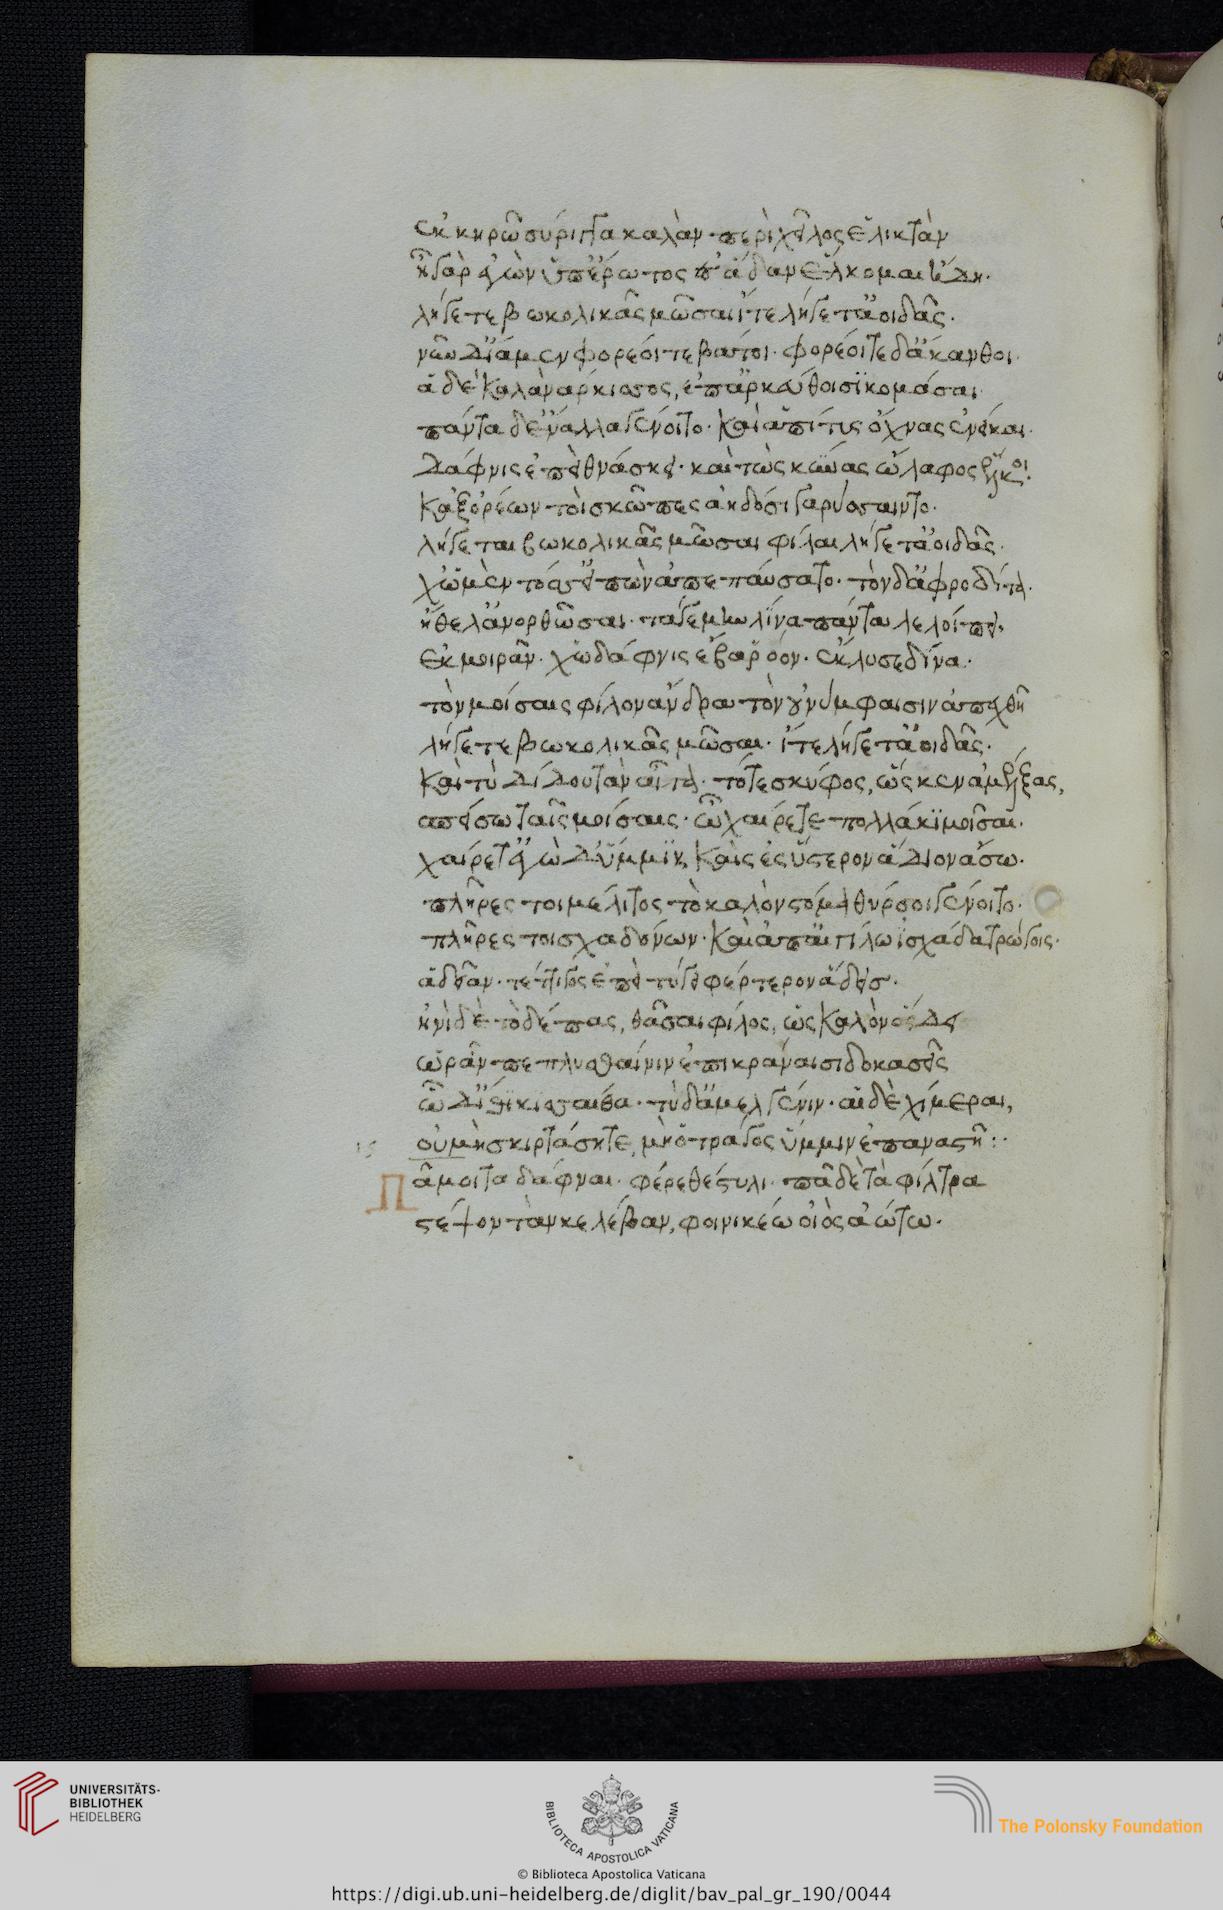 ἐκ κηρῶ σύριγγα καλὰν περὶ χεῖλος ἑλικτὰν
ἦ γὰρ ἐγὼν ὑπ' ἔρωτος ἐς ἅδαν ἕλκομαι ἤδη.
λήγετε βωκολικᾶς μῶσαι ἴτε λήγετ' ἀοιδᾶς.
νῦν δ' ἴα μὲν φορέοιτε βάτοι. φορέοιτε δ' ἄκανθοι.
ἁ δὲ καλὰ νάρκισσος, ἐπ' ἀρκεύθοισι κομάσαι
πάντα δ' ἔναλλα γένοιτο. καὶ ἁ πίτυς ὄχνας ἐνείκαι.
Δάφνις ἐπεὶ θνάσκει. καὶ τὼς κύνας ὤλαφος ἕλκοι.
κἀξ ὀρέων τοὶ σκῶπες ἀηδόσι γαρύσαιντο.
λήγεται βωκολικᾶς μῶσαι φίλαι λήγετ' ἀοιδᾶς.
χὠ μὲν τόσσ' εἰπὼν ἀπεπαύσατο. τὸν δ' ἀφροδίτα.
ἤθελ' ἀνορθῶσαι. τά γε μὰν λίνα πάντα λελοίπει.
ἐκ μοιρᾶν. χὠ δάφνις ἔβα ῥόον. ἔκλυσε δίνα.
τὸν μοίσαις φίλον ἄνδρα τὸν οὐ νύμφαισιν ἀπεχθῆ
λήγετε βωκολικᾶς μῶσαι. ἴτε λήγετ' ἀοιδᾶς.
καὶ τὺ δίδου τὰν αἶγα. τό τε σκύφος, ὥς κεν ἀμέλξας,
σπείσω ταῖς μοίσαις. ὦ χαίρετε πολλάκι μοῖσαι.
χαίρετ' ἐγὼ δ' ὔμμιν καὶ ἐς ὕστερον ἅδιον ᾀσῶ.
πλῆρες τοι μέλιτος τὸ καλὸν στόμα θύρσοι γένοιτο.
πλῆρες τοι σχαδόνων. καὶ ἀπ' αἰγίλω ἰσχάδα τρώγοις.
ἁδεῖαν. τέττιγος ἐπεὶ τύ γε φέρτερον ᾄδεις.
ἠνὶ δὲ τὸ δέπας, θᾶσαι φίλος, ὡς καλὸν ὄζει
ὡρᾶν πεπλύσθαι νιν ἐπὶ κράναισι δοκασεῖς
ὧδ' ἴθι κισσαίθα. τὺ δ' ἄμελγέ νιν. αἱ δὲ χίμεραι,
οὐ μὴ σκιρτάσητε, μὴ ὁ τράγος ὔμμιν ἐπαναστῆ :·
Πᾶ μοι τα δάφναι. φέρε θέστυλι. πᾶ δὲ τὰ φίλτρα
στέψον τὰν κελέβαν, φοινικέω οἰὸς ἀώτω.
UNIVERSITÄTS-
BIBLIOTHEK
HEIDELBERG
BIBLIOTECA APOSTOLICA VATICANA
The Polonsky Foundation
© Biblioteca Apostolica Vaticana
https://digi.ub.uni-heidelberg.de/diglit/bav_pal_gr_190/0044